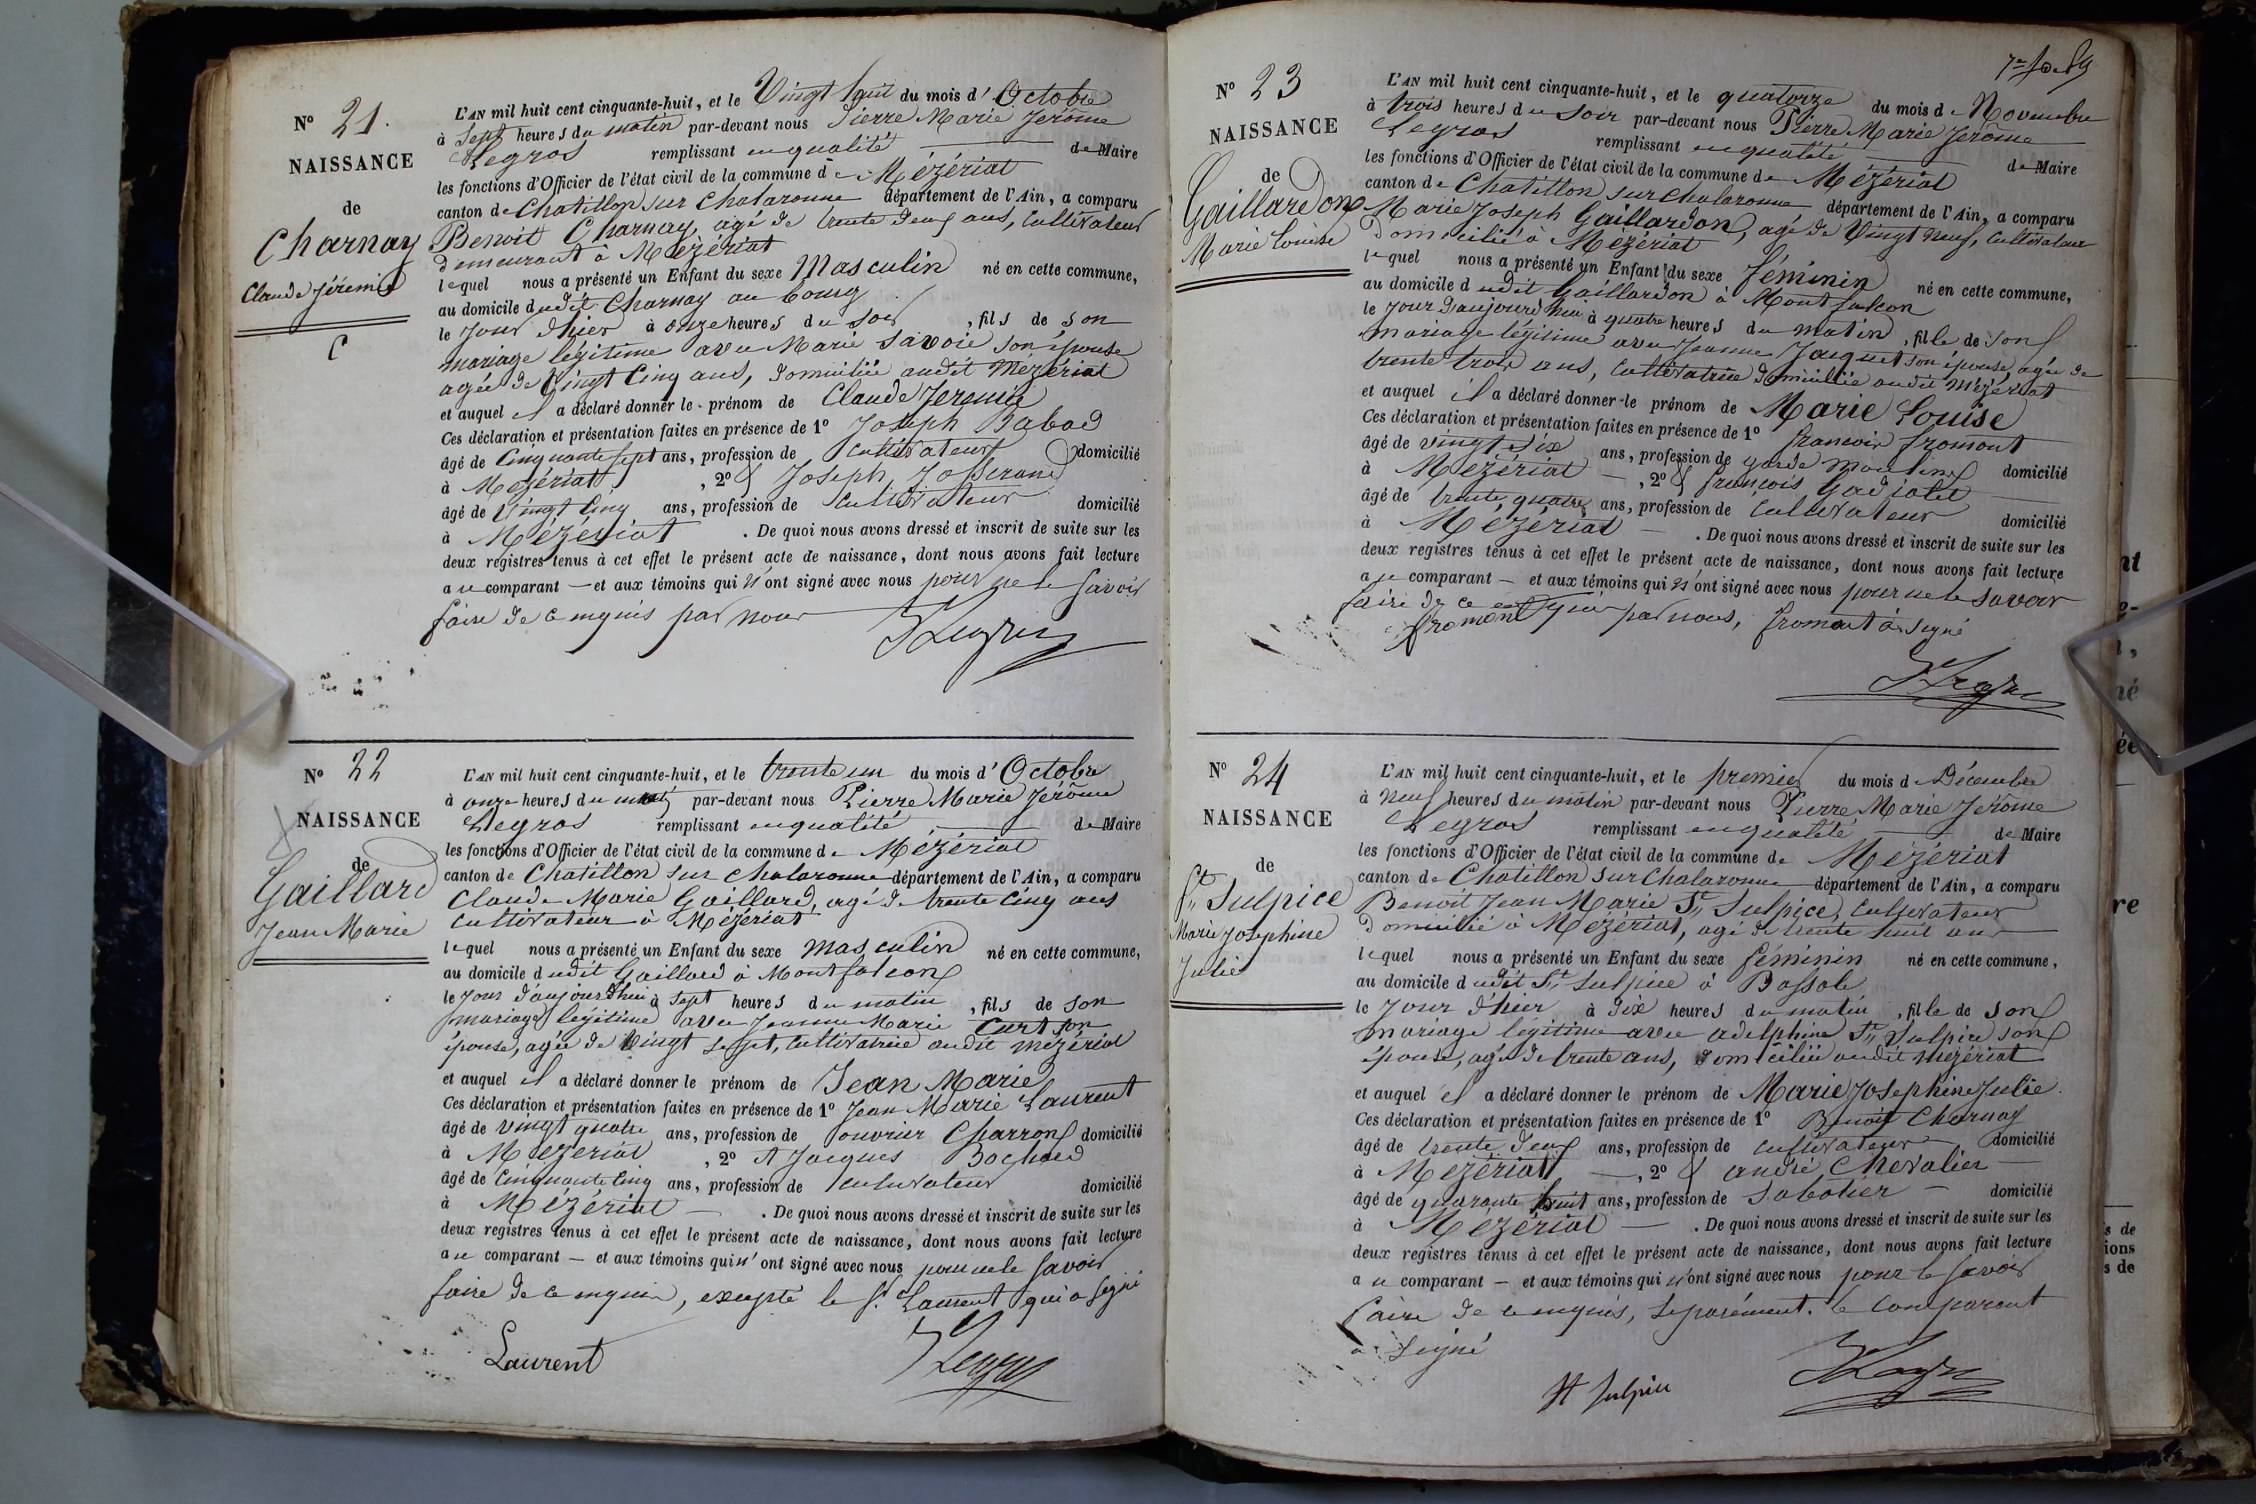 N° 21.
NAISSANCE
de
Charnay
Claude Jérémie
C
L'AN mil huit cent cinquante-huit, et le Vingt huit du mois d'Octobre
à Sept heures du matin par-devant nous Pierre Marie Jérôme
Legros remplissant en qualité de Maire
les fonctions d'Officier de l'état civil de la commune de Mézériat
canton de Chatillon sur Chalaronne département de l'Ain, a comparu
Benoit Charnay, agé de trente deux ans, Cultivateur
demeurant à Mézériat
lequel nous a présenté un Enfant du sexe Masculin né en cette commune,
au domicile dudit Charnay au bourg
le jour d'hier à onze heures du soir, fils de son
mariage légitime avec Marie Savoie son épouse
agée de Vingt Cinq ans, domiciliée audit Mézériat
et auquel il a déclaré donner le prénom de Claude Jeremie
Ces déclaration et présentation faites en présence de 1° Joseph Babad
âgé de Cinquante sept ans, profession de Cultivateur domicilié
à Mézériat, 2° & Joseph Josserand
âgé de Vingt Cinq ans, profession de Cultivateur domicilié
à Mézériat. De quoi nous avons dressé et inscrit de suite sur les
deux registres tenus à cet effet le présent acte de naissance, dont nous avons fait lecture
au comparant — et aux témoins qui n'ont signé avec nous pour ne le savoir
faire de ce enquis par nous
Legros
N° 22
NAISSANCE
de
Gaillard
Jean Marie
L'AN mil huit cent cinquante-huit, et le trente un du mois d'Octobre
à onze heures du matin par-devant nous Pierre Marie Jérôme
Legros remplissant en qualité de Maire
les fonctions d'Officier de l'état civil de la commune de Mézériat
canton de Chatillon sur Chalaronne département de l'Ain, a comparu
Claude Marie Gaillard, agé de trente Cinq ans
Cultivateur à Mézériat
lequel nous a présenté un Enfant du sexe masculin né en cette commune,
au domicile dudit Gaillard à Montfalcon
le jour d'aujourd'hui à sept heures du matin, fils de son
mariage légitime avec Jeanne Marie Curt son
épouse, agée de Vingt sept, Cultivatrice audit Mézériat
et auquel il a déclaré donner le prénom de Jean Marie
Ces déclaration et présentation faites en présence de 1° Jean Marie Laurent
âgé de vingt quatre ans, profession de ouvrier Charron domicilié
à Mézériat, 2° & Jacques Bochard
âgé de Cinquante Cinq ans, profession de Cultivateur domicilié
à Mézériat — . De quoi nous avons dressé et inscrit de suite sur les
deux registres tenus à cet effet le présent acte de naissance, dont nous avons fait lecture
au comparant — et aux témoins qui n'ont signé avec nous pour ne le savoir
faire de ce enquis, excepté le Sr Laurent qui a signé
Laurent Legros
N° 23
NAISSANCE
de
Gaillardon
Marie Louise
L'AN mil huit cent cinquante-huit, et le quatorze du mois de Novembre
à trois heures du soir par-devant nous Pierre Marie Jerôme
Legros remplissant en qualité de Maire
les fonctions d'Officier de l'état civil de la commune de Mézériat
canton de Chatillon sur Chalaronne département de l'Ain, a comparu
Marie Joseph Gaillardon, agé de Vingt neuf, Cultivateur
domicilié à Mezériat
lequel nous a présenté un Enfant du sexe féminin né en cette commune,
au domicile dudit Gaillardon à Montfalcon
le jour d'aujourd'hui à quatre heures du matin, fille de son
mariage légitime avec Jeanne Jacquet son épouse, agée de
trente trois ans, Cultivatrice domiciliée audit Mézériat
et auquel il a déclaré donner le prénom de Marie Louise
Ces déclaration et présentation faites en présence de 1° francois fromont
âgé de vingt six ans, profession de garde moulin domicilié
à Mézériat —, 2° & françois Gadiolet
âgé de trente quatre ans, profession de Cultivateur domicilié
à Mézériat — . De quoi nous avons dressé et inscrit de suite sur les
deux registres tenus à cet effet le présent acte de naissance, dont nous avons fait lecture
au comparant — et aux témoins qui n'ont signé avec nous pour ne le savoir
faire de ce enquis par nous, fromont a signé
fromont
Legros
N° 24
NAISSANCE
de
St Sulpice
Marie Josephine
Julie
L'AN mil huit cent cinquante-huit, et le premier du mois de Décembre
à neuf heures du matin par-devant nous Pierre Marie Jerôme
Legros remplissant en qualité de Maire
les fonctions d'Officier de l'état civil de la commune de Mézériat
canton de Chatillon sur Chalaronne département de l'Ain, a comparu
Benoit Jean Marie St Sulpice, Cultivateur
domicilié à Mezériat, agé de trente huit ans
lequel nous a présenté un Enfant du sexe féminin né en cette commune,
au domicile dudit St Sulpice à
le jour d'hier à dix heures du matin, fille de son
mariage légitime avec adelphine St Sulpice son
épouse, agée de trente ans, domiciliée audit Mézériat
et auquel il a déclaré donner le prénom de Marie Josephine Julie
Ces déclaration et présentation faites en présence de 1° Benoit Charnay
âgé de trente deux ans, profession de cultivateur domicilié
à Mezériat —, 2° & andré Chevalier —
âgé de quarante huit ans, profession de sabotier — domicilié
à Mezériat — . De quoi nous avons dressé et inscrit de suite sur les
deux registres tenus à cet effet le présent acte de naissance, dont nous avons fait lecture
au comparant — et aux témoins qui n'ont signé avec nous pour le savoir
faire de ce enquis, séparément. le comparant
a signé
St Sulpice Legros